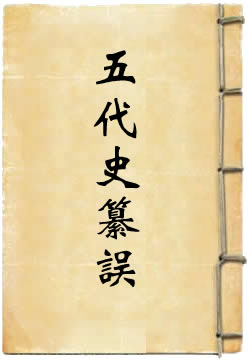 五代史纂誤